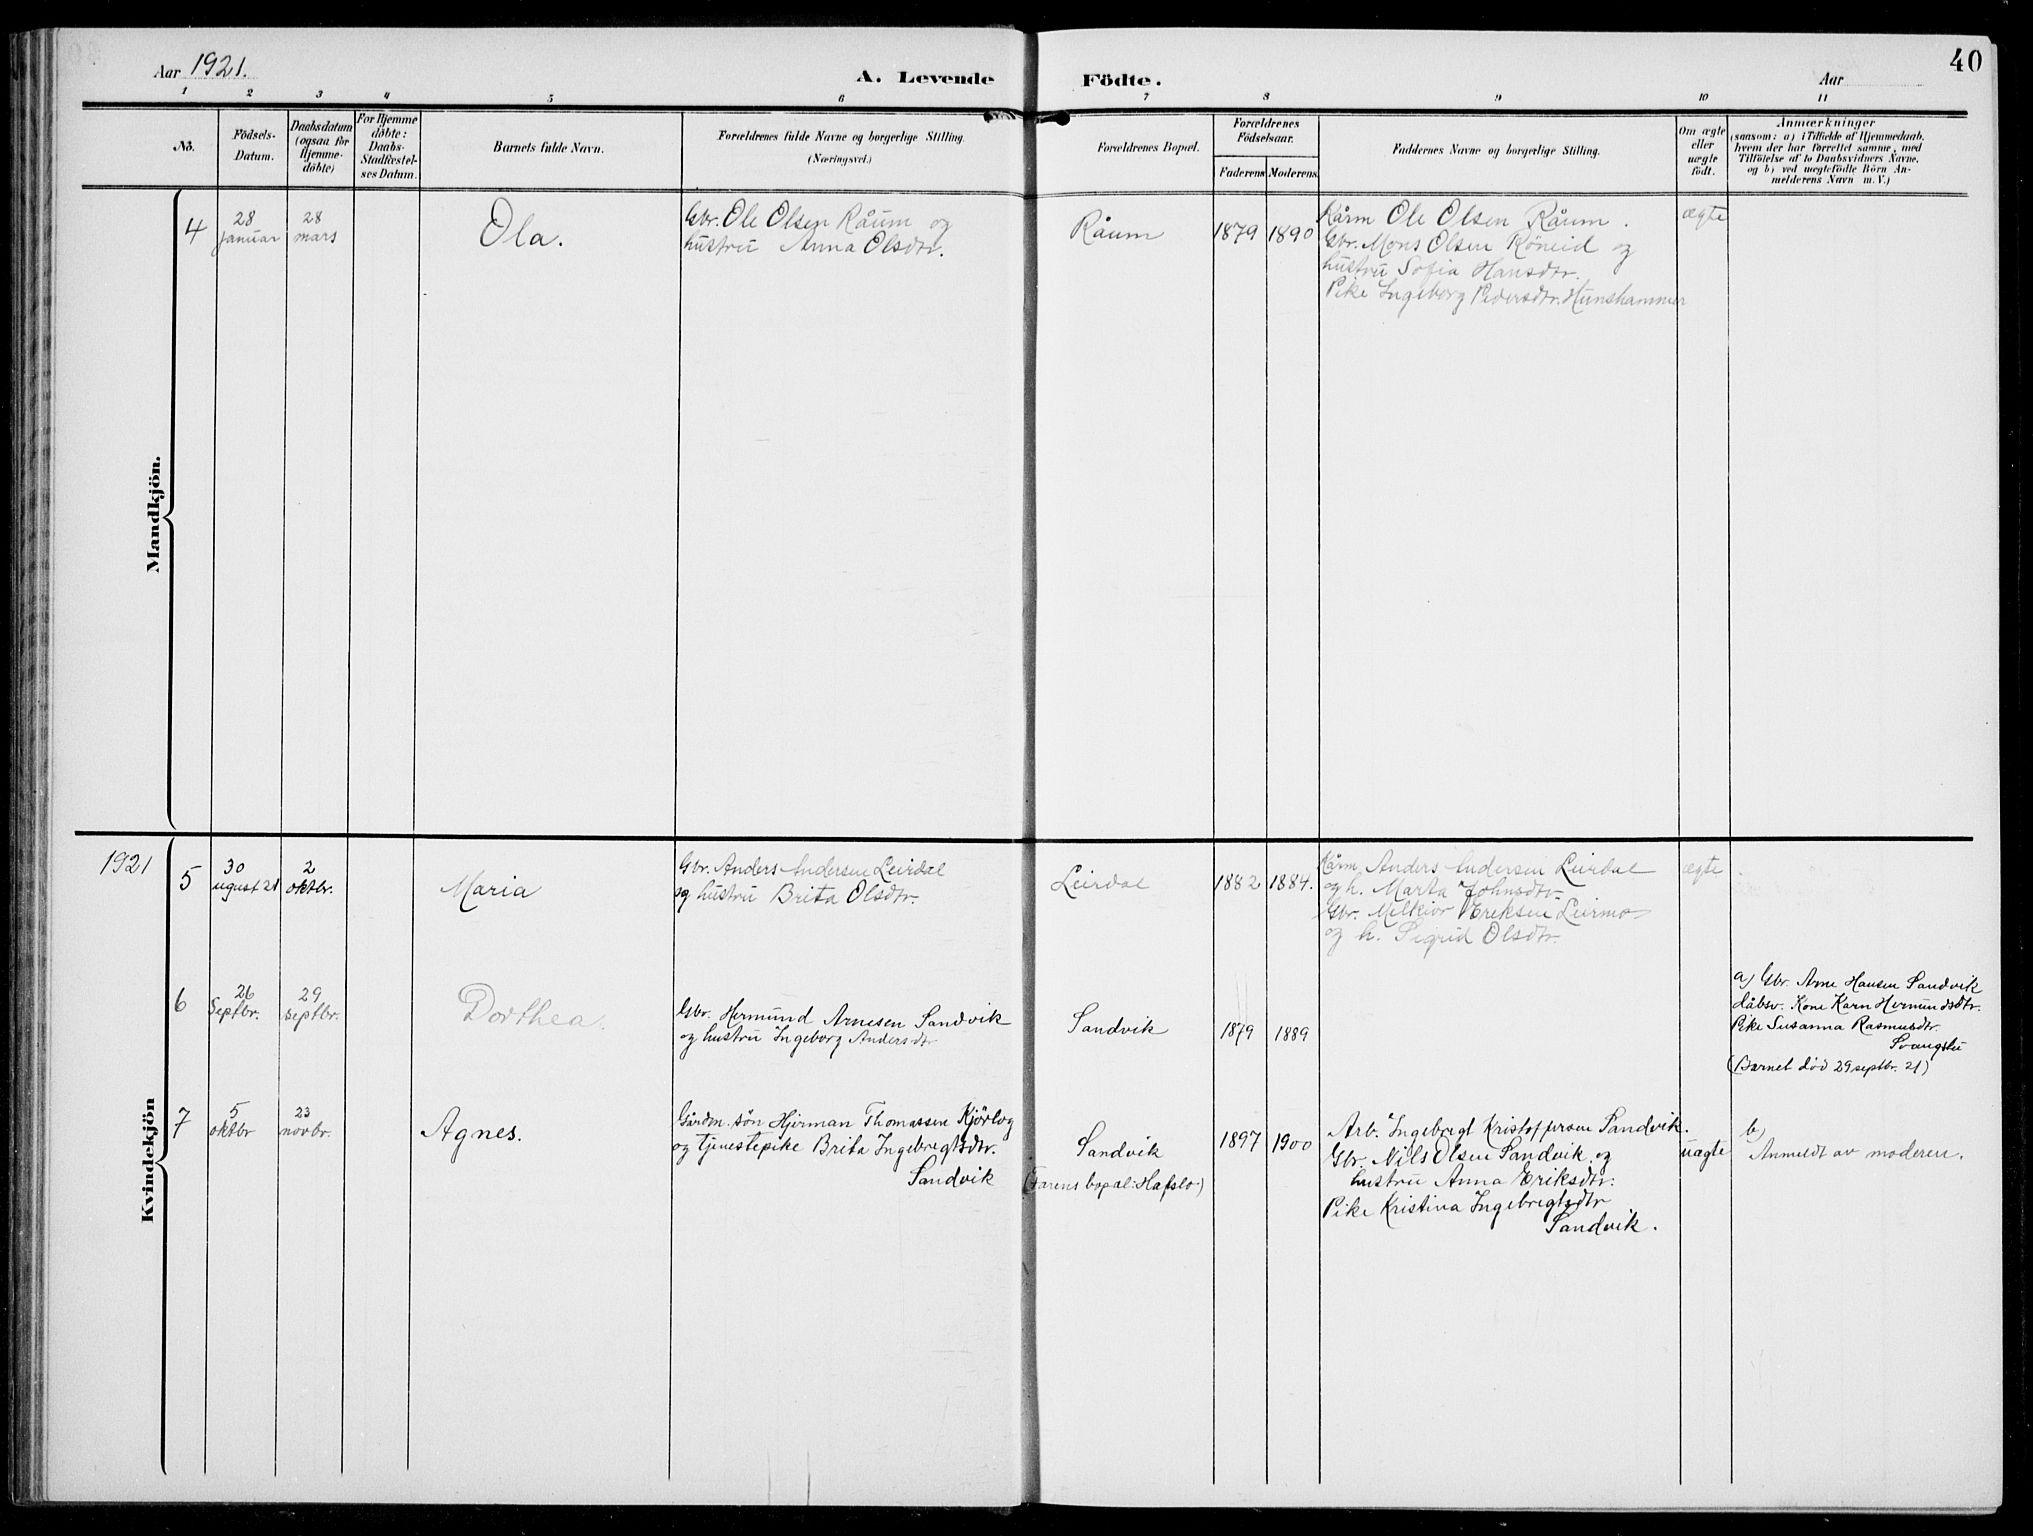 40
Aar 1921.
A. Levende Födte.
Aar
1 2 3 4 5 6 7 8 9 10 11
No.
Födsels-Datum.
Daabsdatum (ogsaa for Hjemme-döbte)
For Hjemme döbte: Daabs-Stadfæstel-ses Datum.
Barnets fulde Navn.
Forældrenes fulde Navne og borgerlige Stilling. (Næringsvei.)
Forældrenes Bopæl.
Forældrenes Födselsaar.
Faderens Moderens.
Faddernes Navne og borgerlige Stilling.
Om ægte eller uægte födt.
Anmærkninger
(saasom: a) i Tilfælde af Hjemmedaab,
hvem der har forrettet samme, med
Tilföielse af to Daabsvidners Navne,
og b) ved uægtefödte Börn An-
melderens Navn m. V.)
Mandkjön.
4
28 januar
28 mars
Ola.
Gbr. Ole Olsen Råum og
hustru Anna Olsdtr.
Råum
1879 1890
Kårm Ole Olsen Råum.
Gbr. Mons Olsen Röneid og
hustru Sofia Hansdtr.
Pike Ingeborg Pedersdtr. Hunshammer
ægte
1921
Kvindekjön
5
30 ugust 21
2 oktbr.
Maria
Gbr. Anders Andersen Leirdal
og hustru Brita Olsdtr.
Leirdal
1882 1884.
Kårm. Anders Andersen Leirdal
og h. Marta Johnsdtr.
Gbr. Melkior Eriksen Leirmo
og h. Sigrid Olsdtr.
ægte
6
26 Septbr.
29 septbr.
Dorthea.
Gbr. Hermund Arnesen Sandvik
og hustru Ingeborg Andersdtr
Sandvik
1879 1889
a) Gbr. Arne Hansen Sandvik
dåbsv. Kone Karn Hermundsdtr.
Pike Susanna Rasmusdtr.
(Barnet död 29 septbr. 21)
7
5 oktbr
23 novbr.
Agnes.
Gårdm. sön Hjerman Thomassen Kjörlog
og tjenestepike Brita Ingebregtsdtr.
Sandvik
Sandvik
(Farens bopal: Hafslo.)
1897 1900
Arb. Ingebregt Kristoffersen Sandvik.
Gbr. Nils Olsen Sandvik og
hustru Anna Eriksdtr.
Pike Kristina Ingebregtsdtr
Sandvik.
uægte
b)
Anmeldt av moderen.